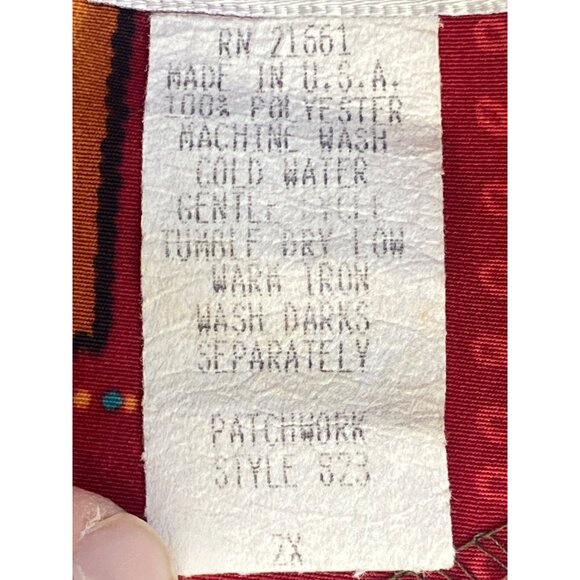 RN 21661
MADE IN U.S.A.
100% POLYESTER
MACHINE WASH
COLD WATER
GENTLE CYCLE
TUMBLE DRY LOW
WARM IRON
WASH DARKS
SEPARATELY
PATCHWORK
STYLE S23
2X